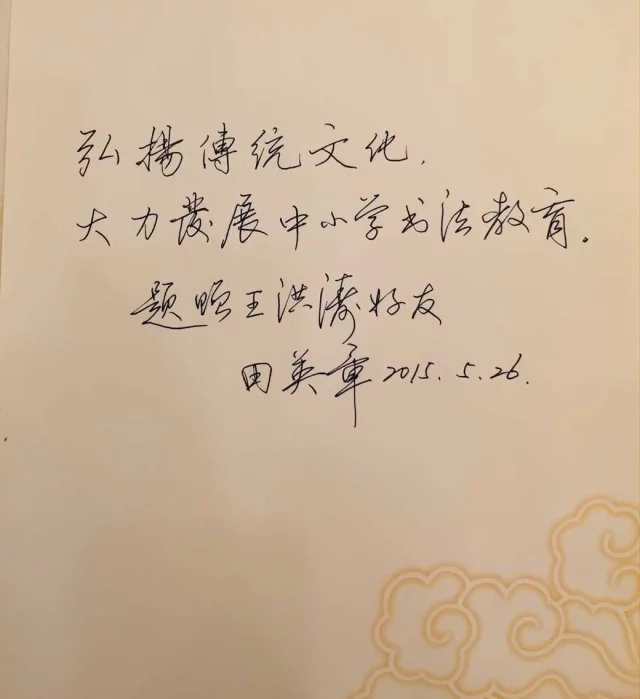 弘揚傳统文化.
大力發展中小学书法教育。
题贈王洪濤好友
田英章 2015.5.26.